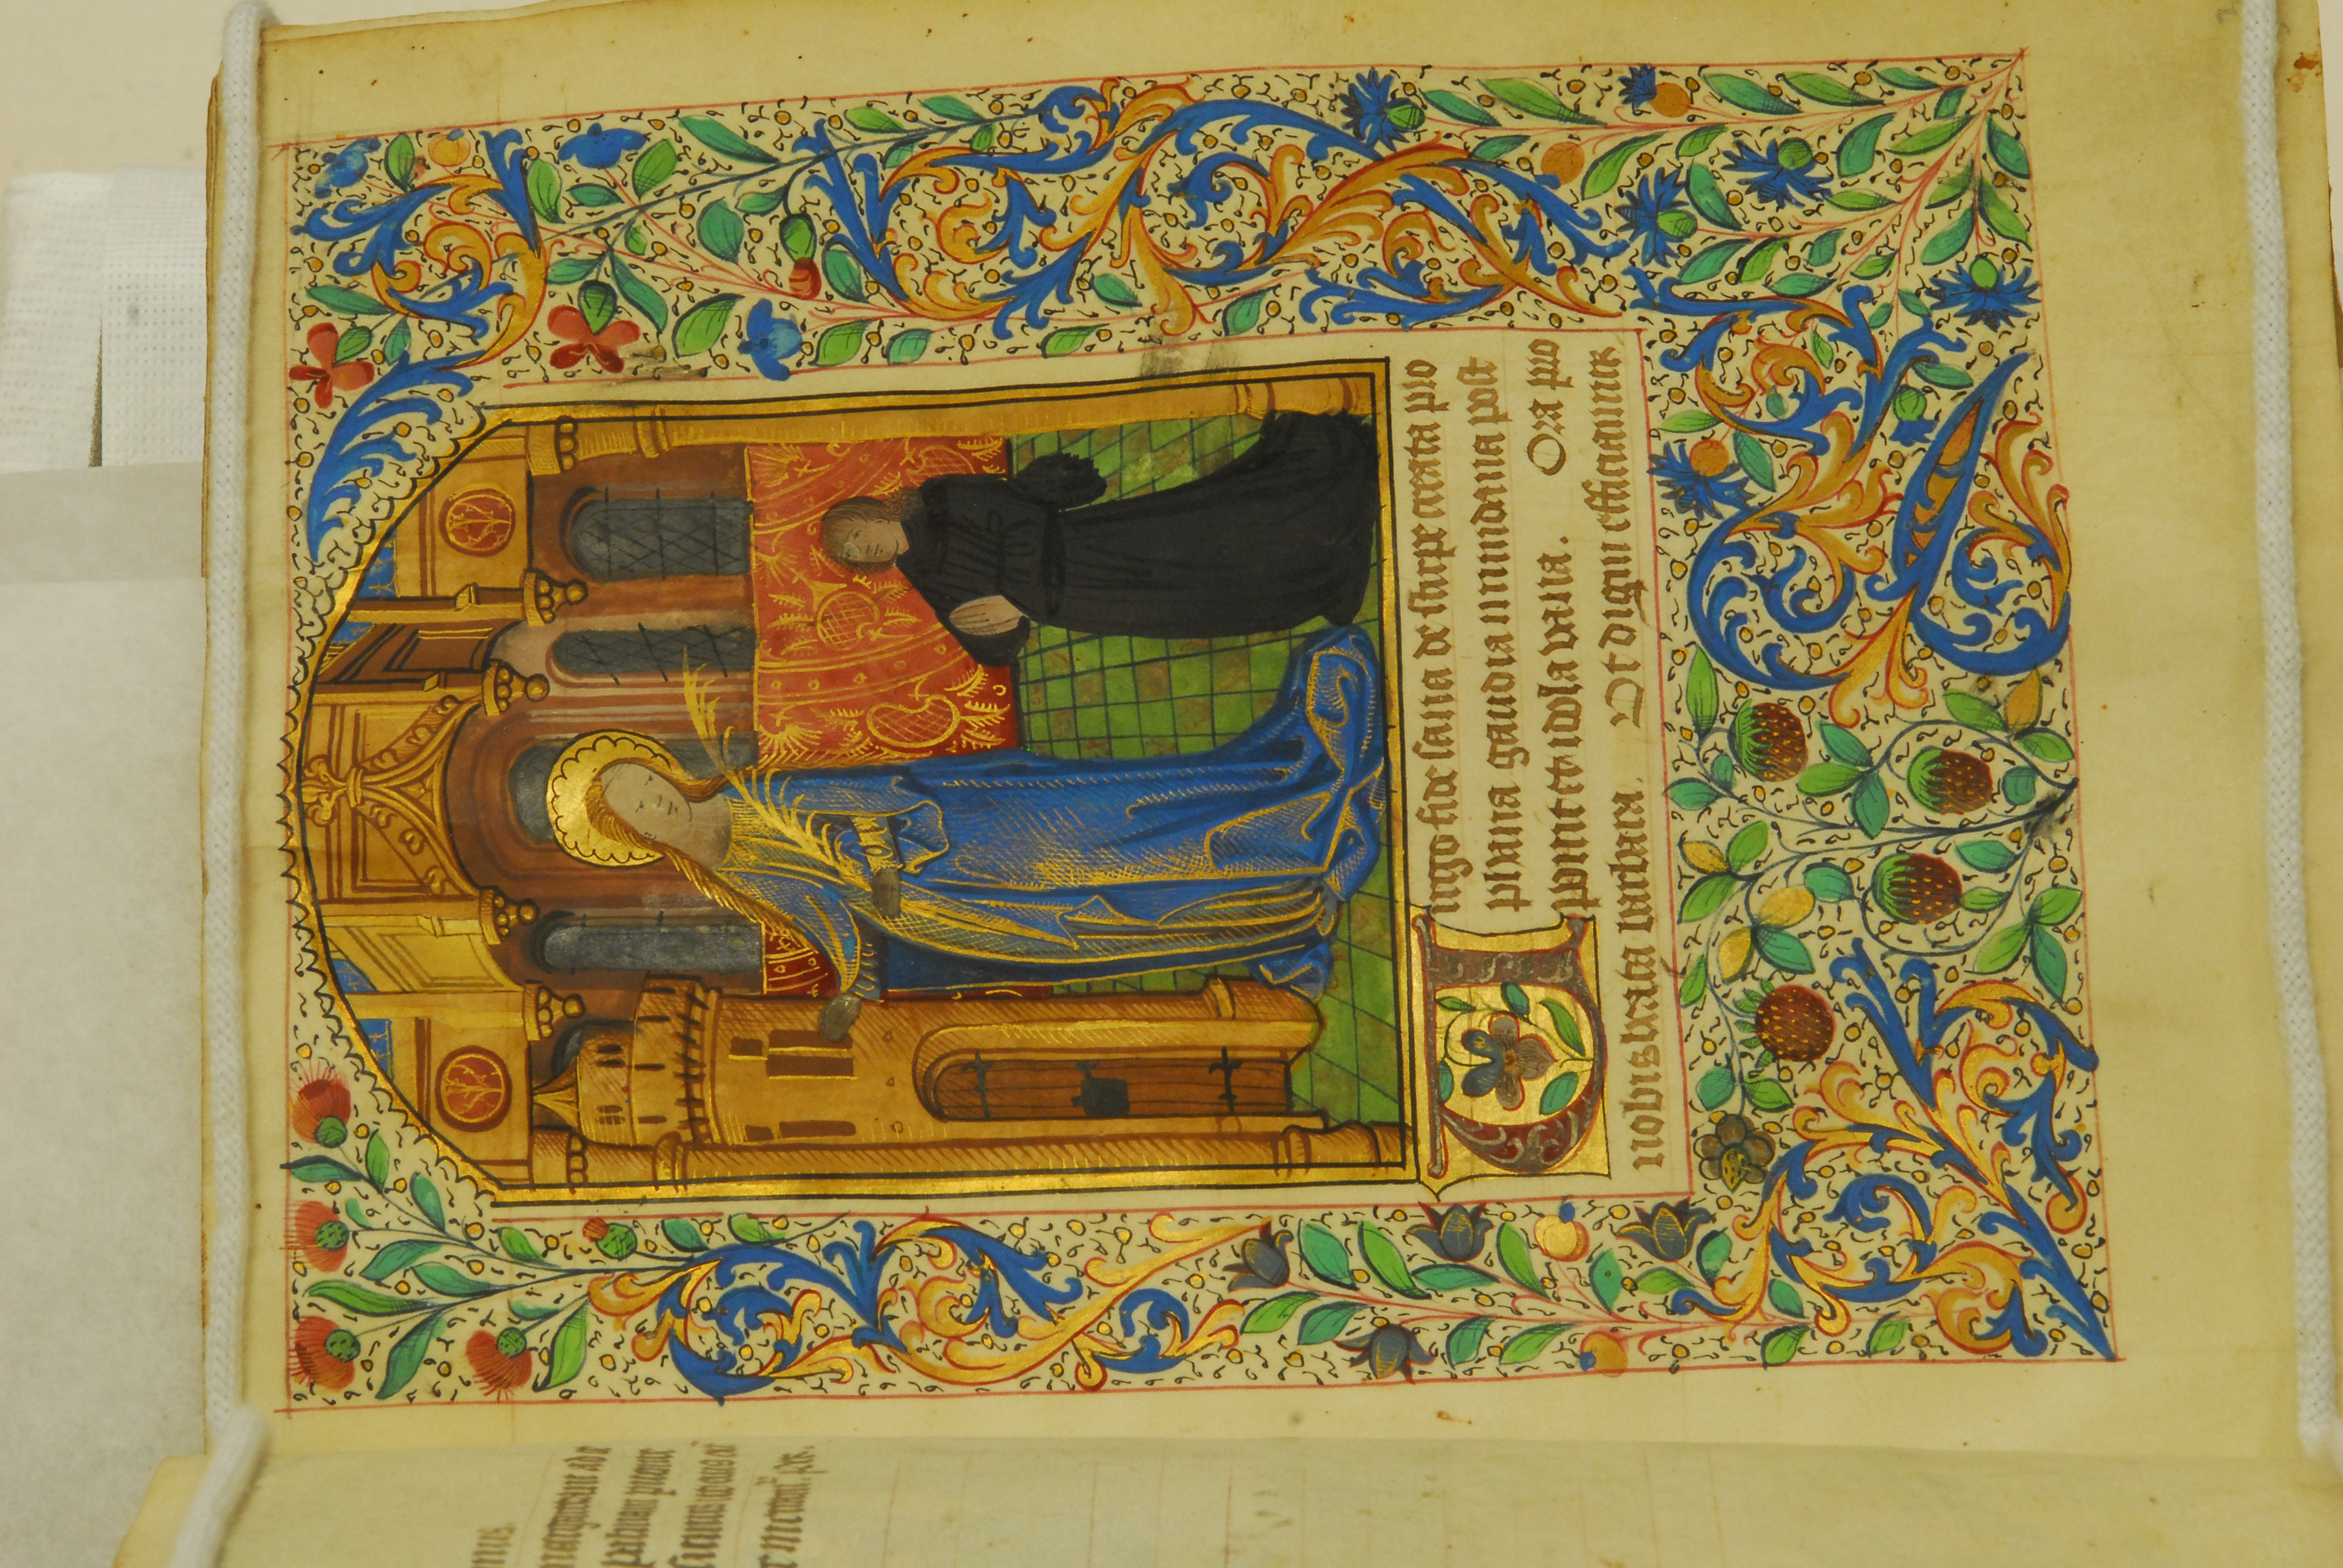 Virgo fide sana de stirpe creata pro
phana gaudia mundana post
pponit et idola vana. Ora pro
nobis beata barbara. Ut digni efficiamur